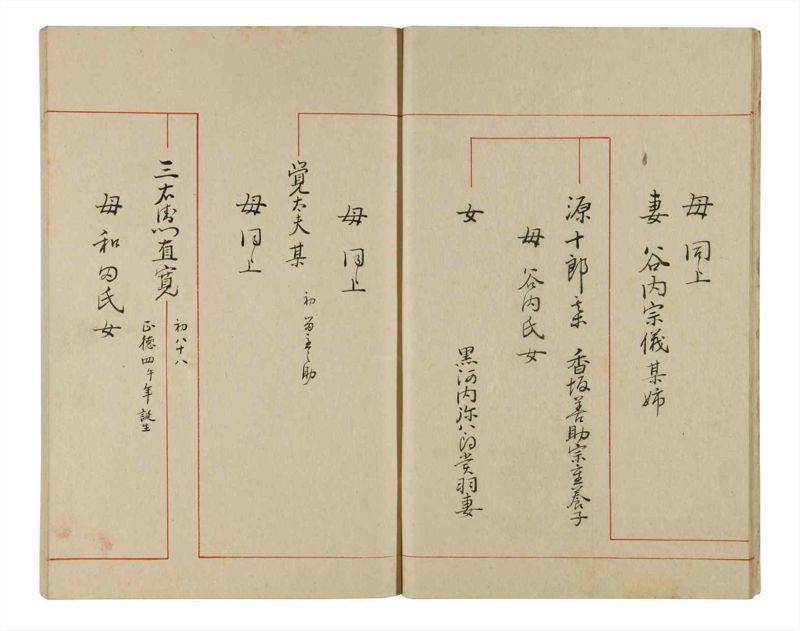 母同上
妻 谷内宗儀某姉
源十郎某 香坂善助宗重養子
母 谷内氏女
女
黒河内弥八郎貴羽妻
母同上
覚太夫某
初 助
母同上
三右衛門直寛
初八十八
正徳四午年誕生
母 和田氏女